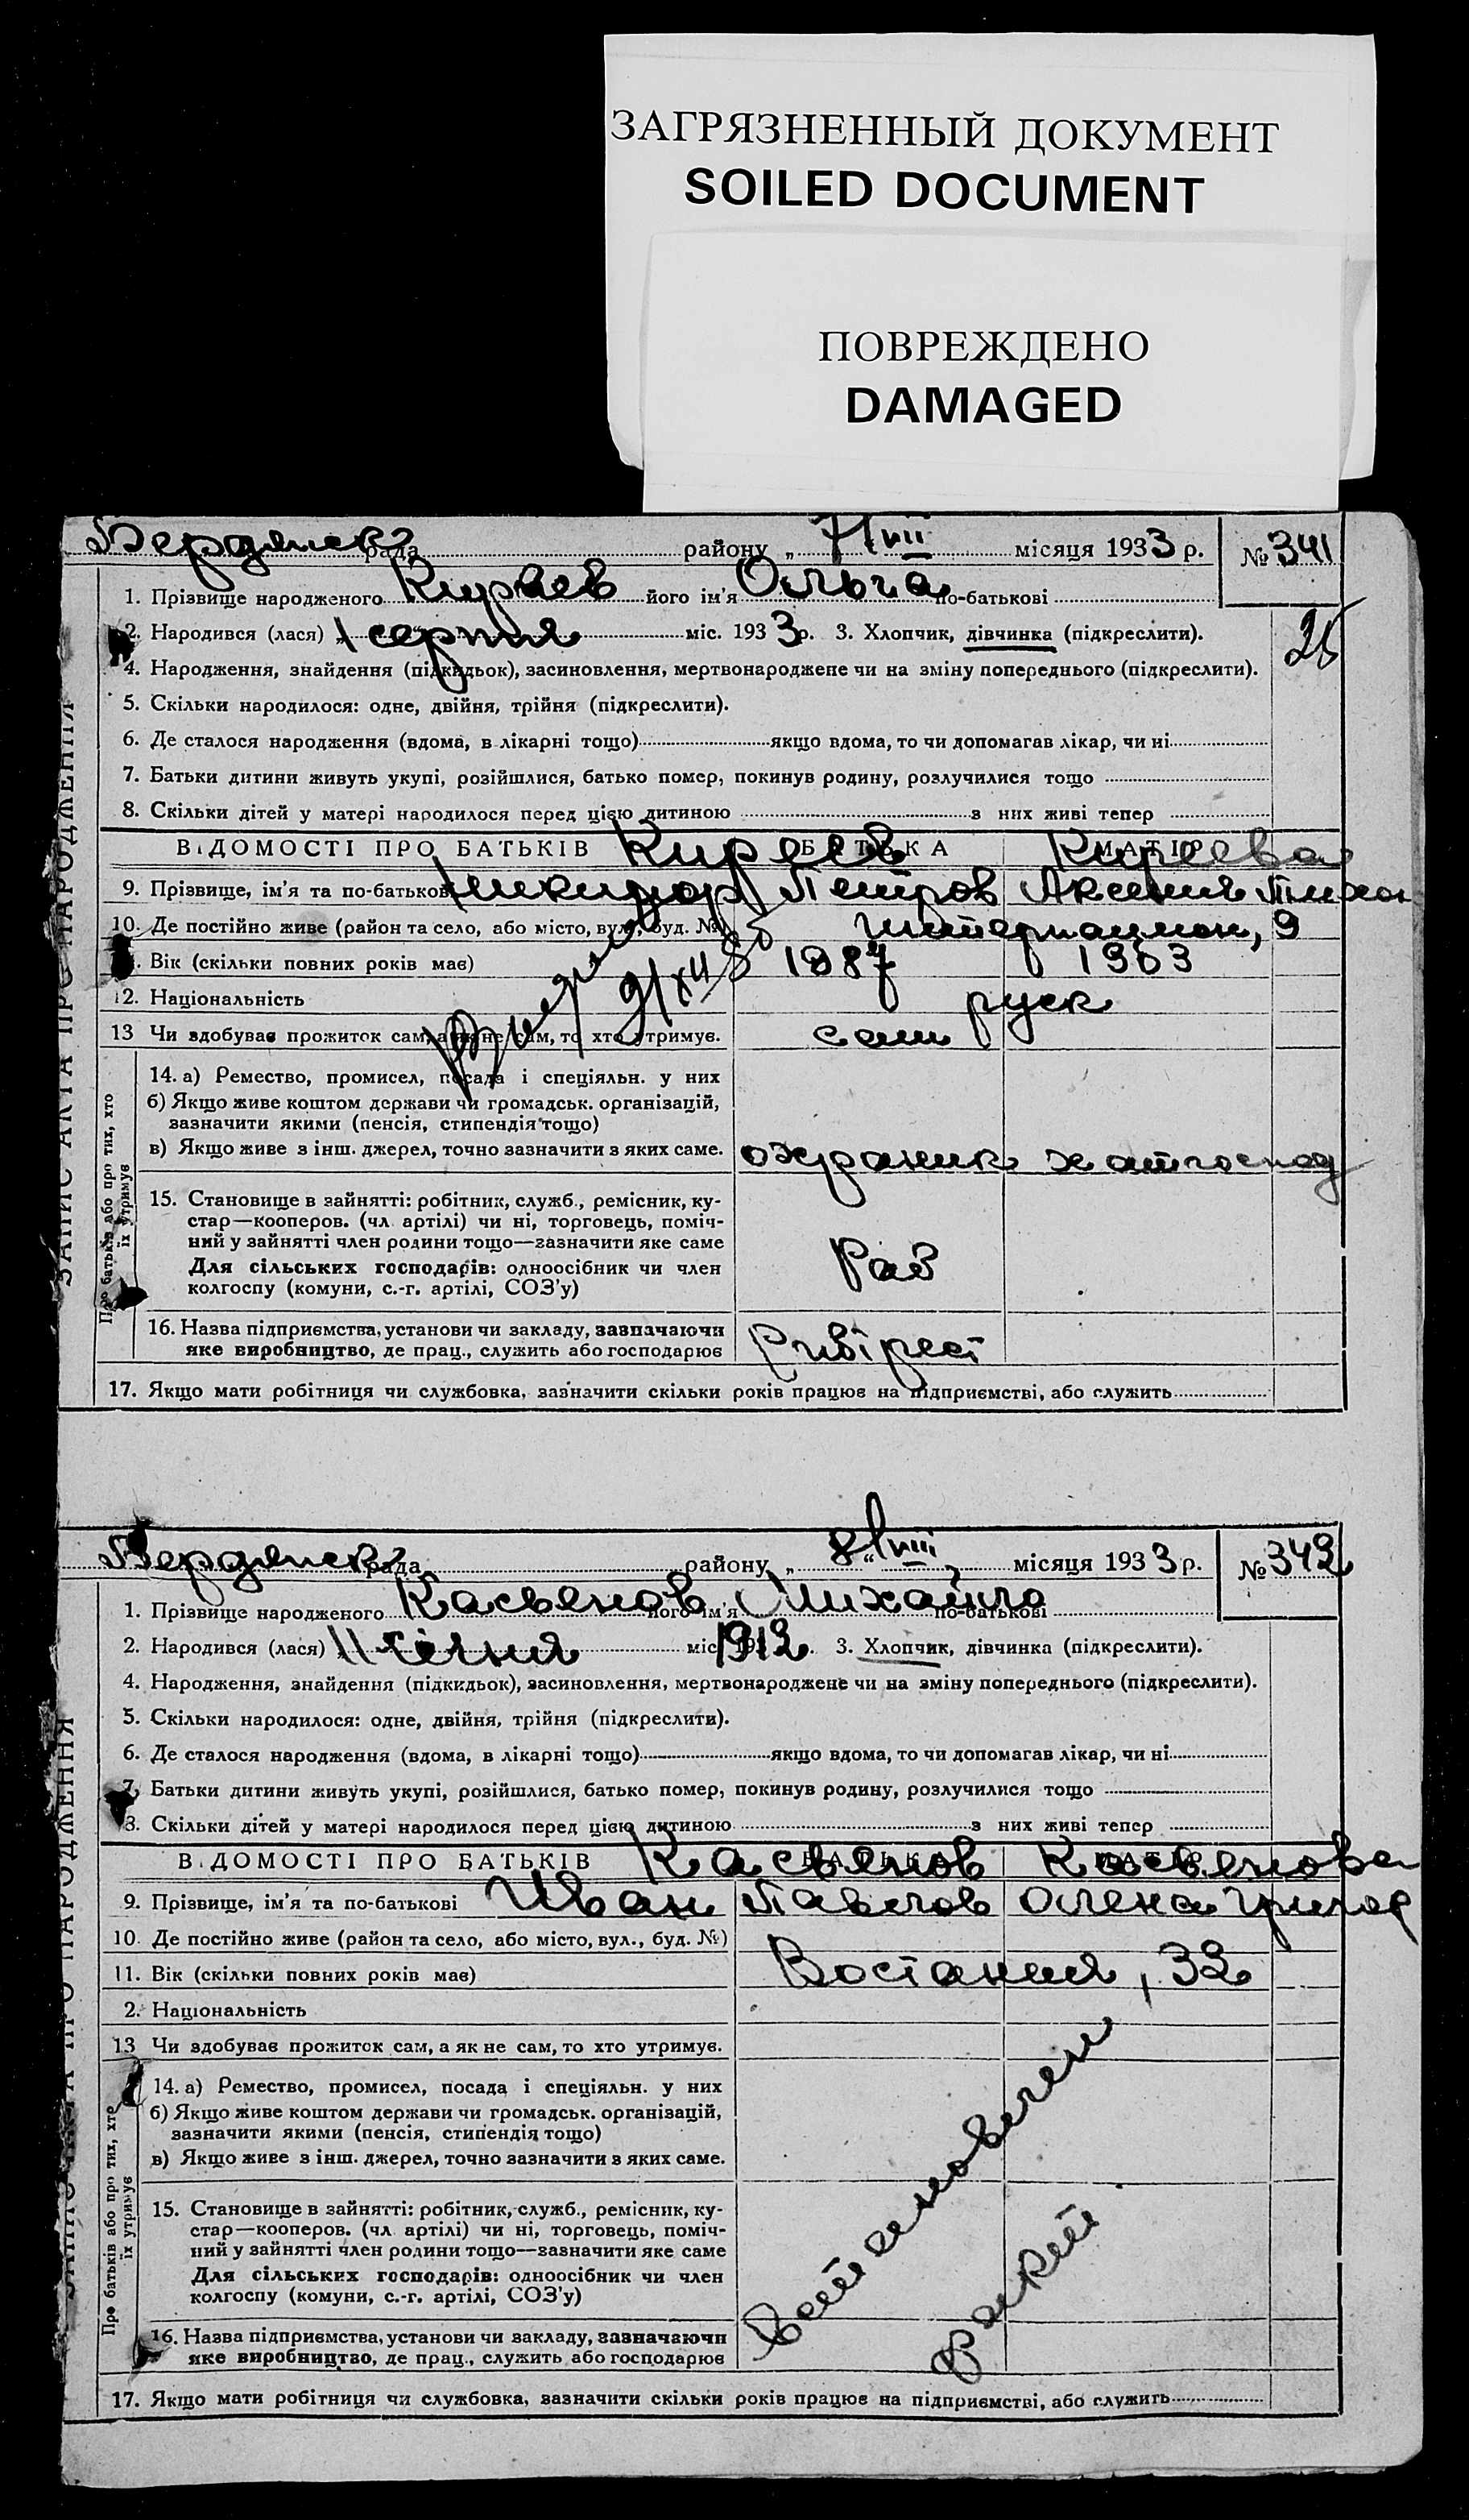 ЗАГРЯЗНЕННЫЙ ДОКУМЕНТ
SOILED DOCUMENT
ПОВРЕЖДЕНО
DAMAGED
Бердянськ рада району „ 7/VIII місяця 1933 р. № 341
1. Прізвище народженого Киреев його ім'я Ольга по-батькові
2. Народився (лася) „1 серпня міс. 1933 р. 3. Хлопчик, дівчинка (підкреслити).
25
4. Народження, знайдення (підкидьок), засиновлення, мертвонароджене чи на зміну попереднього (підкреслити).
5. Скільки народилося: одне, двійня, трійня (підкреслити).
6. Де сталося народження (вдома, в лікарні тощо) якщо вдома, то чи допомагав лікар, чи ні
7. Батьки дитини живуть укупі, розійшлися, батько помер, покинув родину, розлучилися тощо
8. Скільки дітей у матері народилося перед цією дитиною з них живі тепер
ВІДОМОСТІ ПРО БАТЬКІВ БАТЬКА Киреев МАТІР Киреева
9. Прізвище, ім'я та по-батькові Никифор Петров Аксения Тихон
10. Де постійно живе (район та село, або місто, вул., буд. №) Интернацион, 9
11. Вік (скільки повних років має) 1887 1903
12. Національність руск
13 Чи здобуває прожиток сам, а як не сам, то хто утримує. сам
14. а) Ремество, промисел, посада і спеціяльн. у них
б) Якщо живе коштом держави чи громадськ. організацій,
зазначити якими (пенсія, стипендія тощо)
в) Якщо живе з інш. джерел, точно зазначити з яких саме. охраник хатгоспод
15. Становище в зайнятті: робітник, служб., ремісник, ку-
стар—кооперов. (чл. артілі) чи ні, торговець, поміч-
ний у зайнятті член родини тощо—зазначити яке саме
Для сільських господарів: одноосібник чи член
колгоспу (комуни, с.-г. артілі, СОЗ'у)
Роб
16. Назва підприємства, установи чи закладу, зазначаючи
яке виробництво, де прац., служить або господарює
17. Якщо мати робітниця чи службовка, зазначити скільки років працює на підприємстві, або служить
ЗАПИС АКТА ПРО НАРОДЖЕННЯ
Про батьків або про тих, хто
їх утримує
Бердянськ рада району „ 8/VIII місяця 1933 р. № 342
1. Прізвище народженого Касьянов його ім'я Михайло по-батькові
2. Народився (лася) „11 січня міс. 1912 3. Хлопчик, дівчинка (підкреслити).
4. Народження, знайдення (підкидьок), засиновлення, мертвонароджене чи на зміну попереднього (підкреслити).
5. Скільки народилося: одне, двійня, трійня (підкреслити).
6. Де сталося народження (вдома, в лікарні тощо) якщо вдома, то чи допомагав лікар, чи ні
7. Батьки дитини живуть укупі, розійшлися, батько помер, покинув родину, розлучилися тощо
8. Скільки дітей у матері народилося перед цією дитиною з них живі тепер
ВІДОМОСТІ ПРО БАТЬКІВ Касьянов Касьянова
9. Прізвище, ім'я та по-батькові Иван Павлов Олена Григор
10. Де постійно живе (район та село, або місто, вул., буд. №)
11. Вік (скільки повних років має) Востания, 32
2. Національність
13 Чи здобуває прожиток сам, а як не сам, то хто утримує.
14. а) Ремество, промисел, посада і спеціяльн. у них
б) Якщо живе коштом держави чи громадськ. організацій,
зазначити якими (пенсія, стипендія тощо)
в) Якщо живе з інш. джерел, точно зазначити з яких саме.
15. Становище в зайнятті: робітник, служб., ремісник, ку-
стар—кооперов. (чл. артілі) чи ні, торговець, поміч-
ний у зайнятті член родини тощо—зазначити яке саме
Для сільських господарів: одноосібник чи член
колгоспу (комуни, с.-г. артілі, СОЗ'у)
16. Назва підприємства, установи чи закладу, зазначаючи
яке виробництво, де прац., служить або господарює
17. Якщо мати робітниця чи службовка, зазначити скільки років працює на підприємстві, або служить
ЗАПИС АКТА ПРО НАРОДЖЕННЯ
Про батьків або про тих, хто
їх утримує